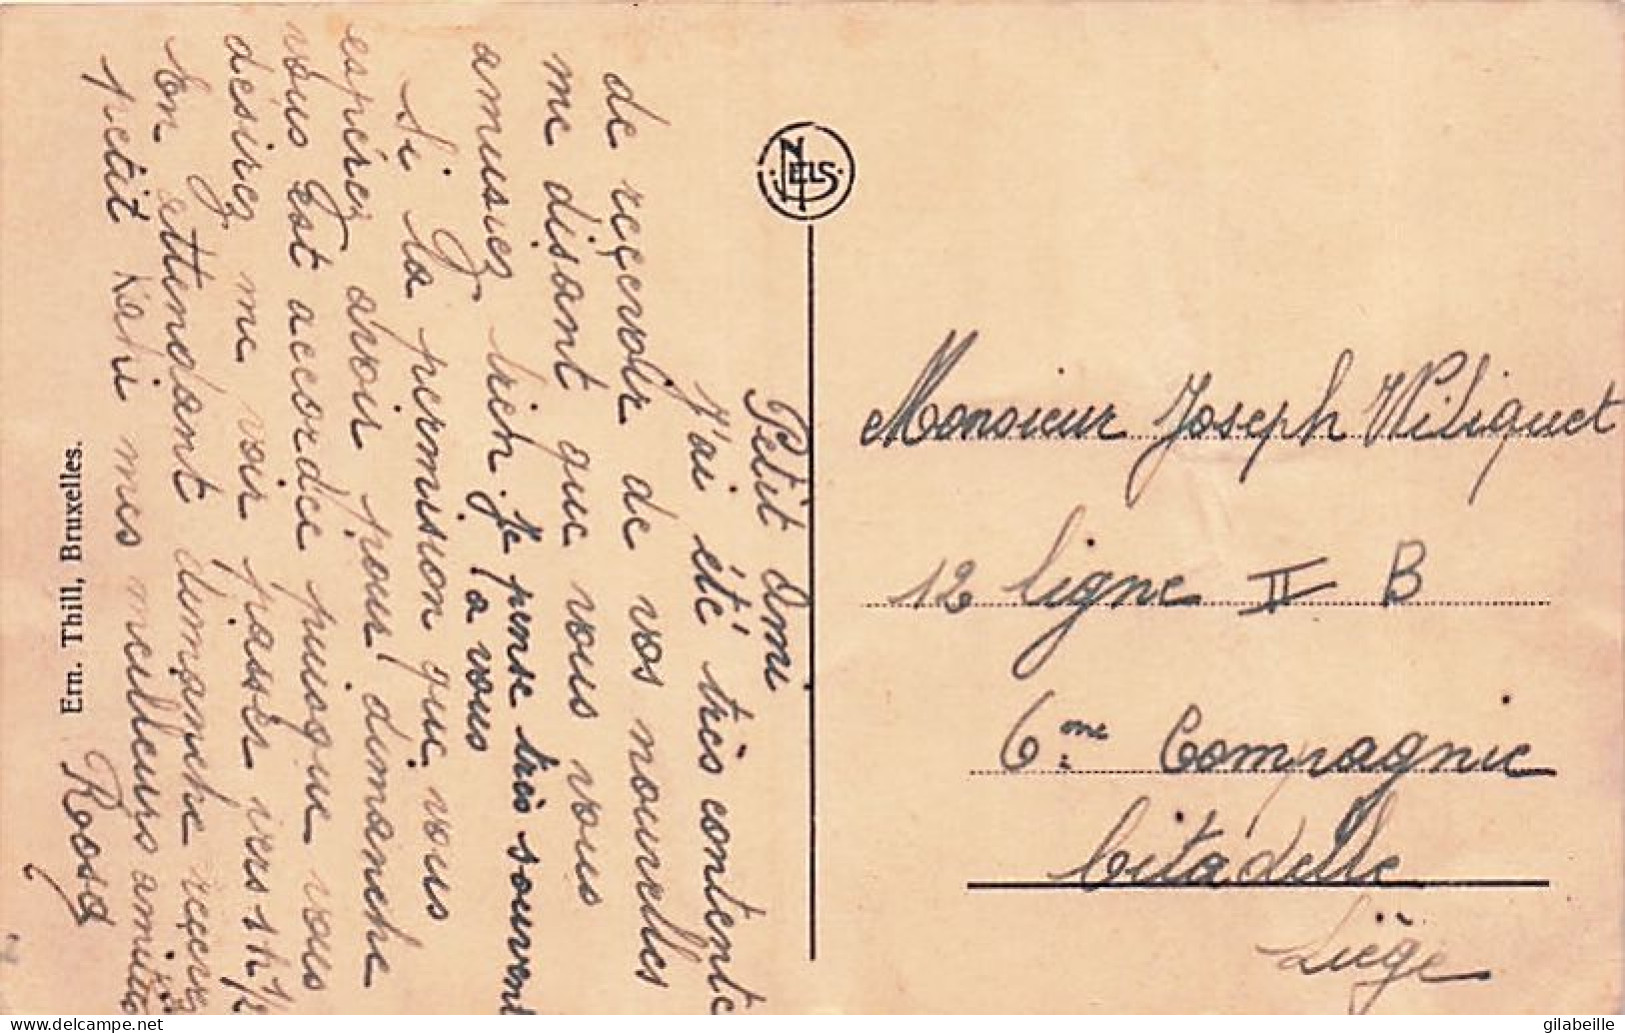 Petit Ami
J'ai été très contente
de reçevoir de vos nouvelles
me disant que vous vous
amusiez bien. Je pense très souvent
a vous
Si la permission que vous
espérez avoir pour dimanche
vous est accordée puisque vous
désirez me voir passer vers 1h 1/2
En attendant dimanche reçevez
petit mes meilleurs amitiés
Rosa
Ern. Thill, Bruxelles.
NELS
Monsieur Joseph Wiliquet
12 ligne II B
6me Compagnie
Citadelle
Liège
gilabeille